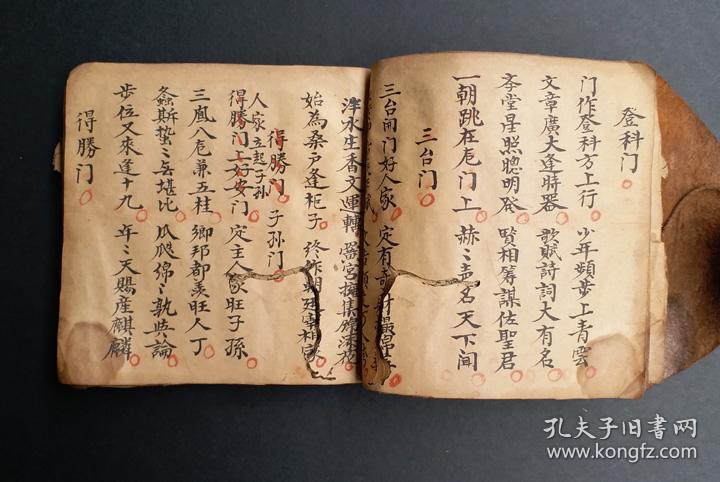 登科门
門作登科方上行 少年頻步上青雲
文章廣大逢時器 歌賦詩詞大有名
李堂星照聰明發 賢相籌謀佐聖君
一朝跳在危门上 赫〻声名天下间
三台门
三台開门好人家 定有
泮水生香文運轉
始為桑户逢柜子 終作
得勝门 子孙门
人家立起子孙
得勝门上好安门 定主人家旺子孫
三鳳八危兼五桂 鄉邦都羡旺人丁
螽斯蟄〻堪比 瓜瓞綿〻孰與論
步位又來逢十九 年〻天賜産麒麟
得勝门
孔夫子旧书网
www.kongfz.com